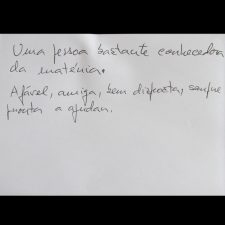 Uma pessoa bastante conhecedora
da matéria.
Afável, amiga, bem disposta, sempre
pronta a ajudar.